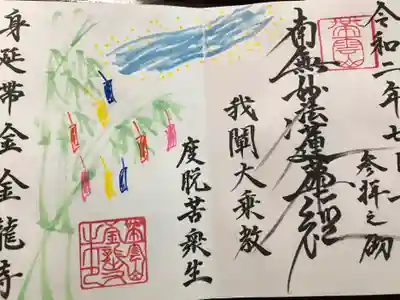 令和二年七月
参拝之砌
南無妙法蓮華経
我闡大乗教
度脱苦衆生
身延帯金金龍寺